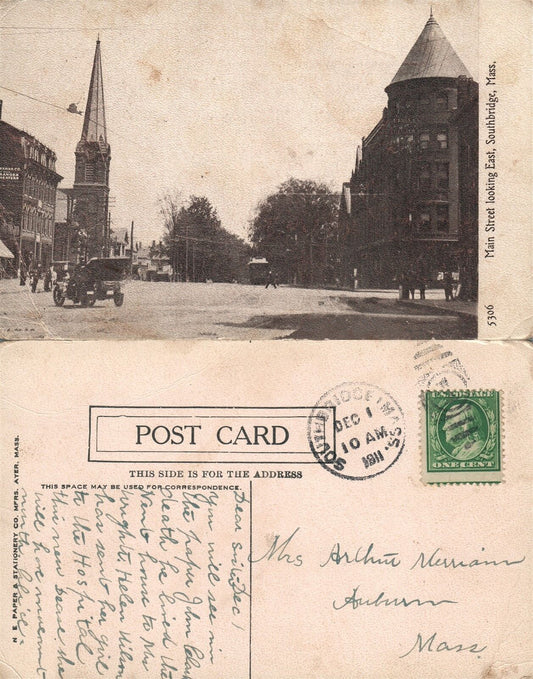 Main Street looking East, Southbridge, Mass.
5306
POST CARD
THIS SIDE IS FOR THE ADDRESS
THIS SPACE MAY BE USED FOR CORRESPONDENCE.
N E PAPER & STATIONERY CO. MFRS. AYER, MASS.
SOUTHBRIDGE, MASS.
DEC 1
10 AM
1911
U.S. POSTAGE
ONE CENT
Dec 1
Dear
you will see in
the paper John
death he lived the
house to Mrs
Wright. Helen Wilson
has sent her girl
to the Hospital
this new
will
Mrs Arthur Merriam
Auburn
Mass